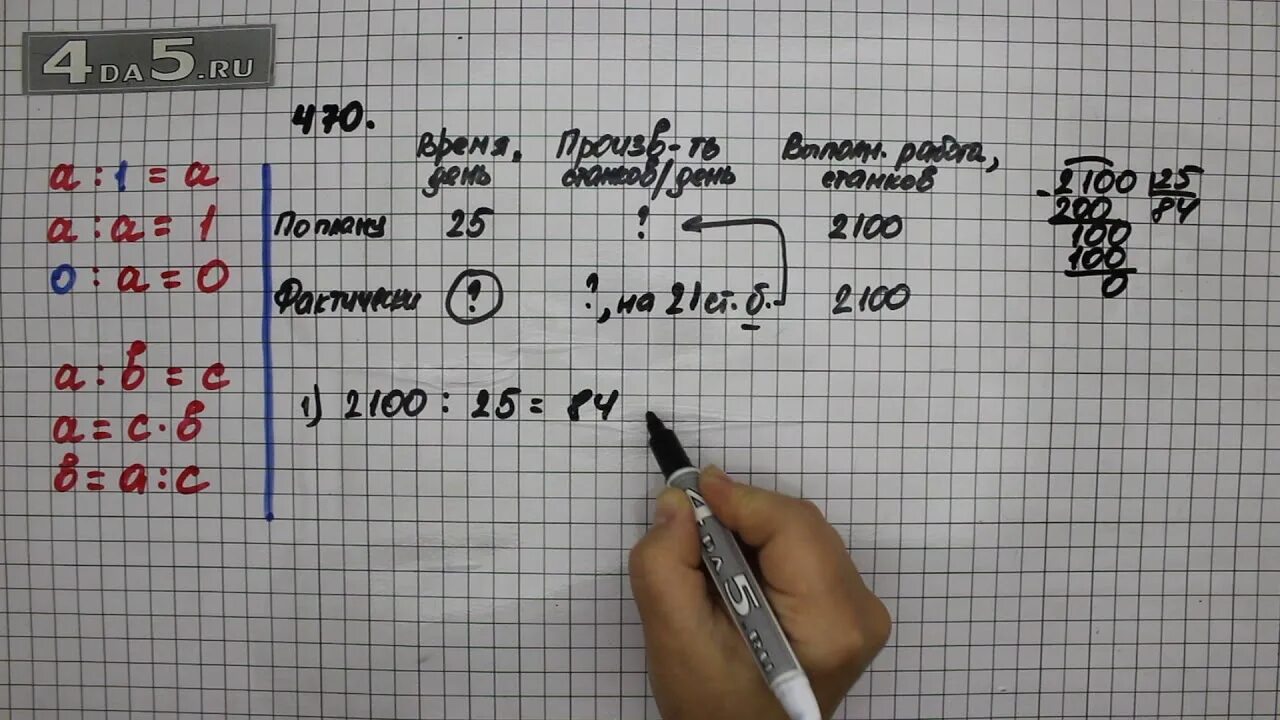 4DA5.RU
470.
a : 1 = a
a : a = 1
0 : a = 0
a : в = c
a = c · в
в = a : c
Время, день
Произв-ть станков/день
Выполн. работа, станков
По плану 25 ? 2100
Фактически ? ?, на 21 ст. б. 2100
2100 25
- 200 84
100
100
0
1) 2100 : 25 = 84
4DA5.RU